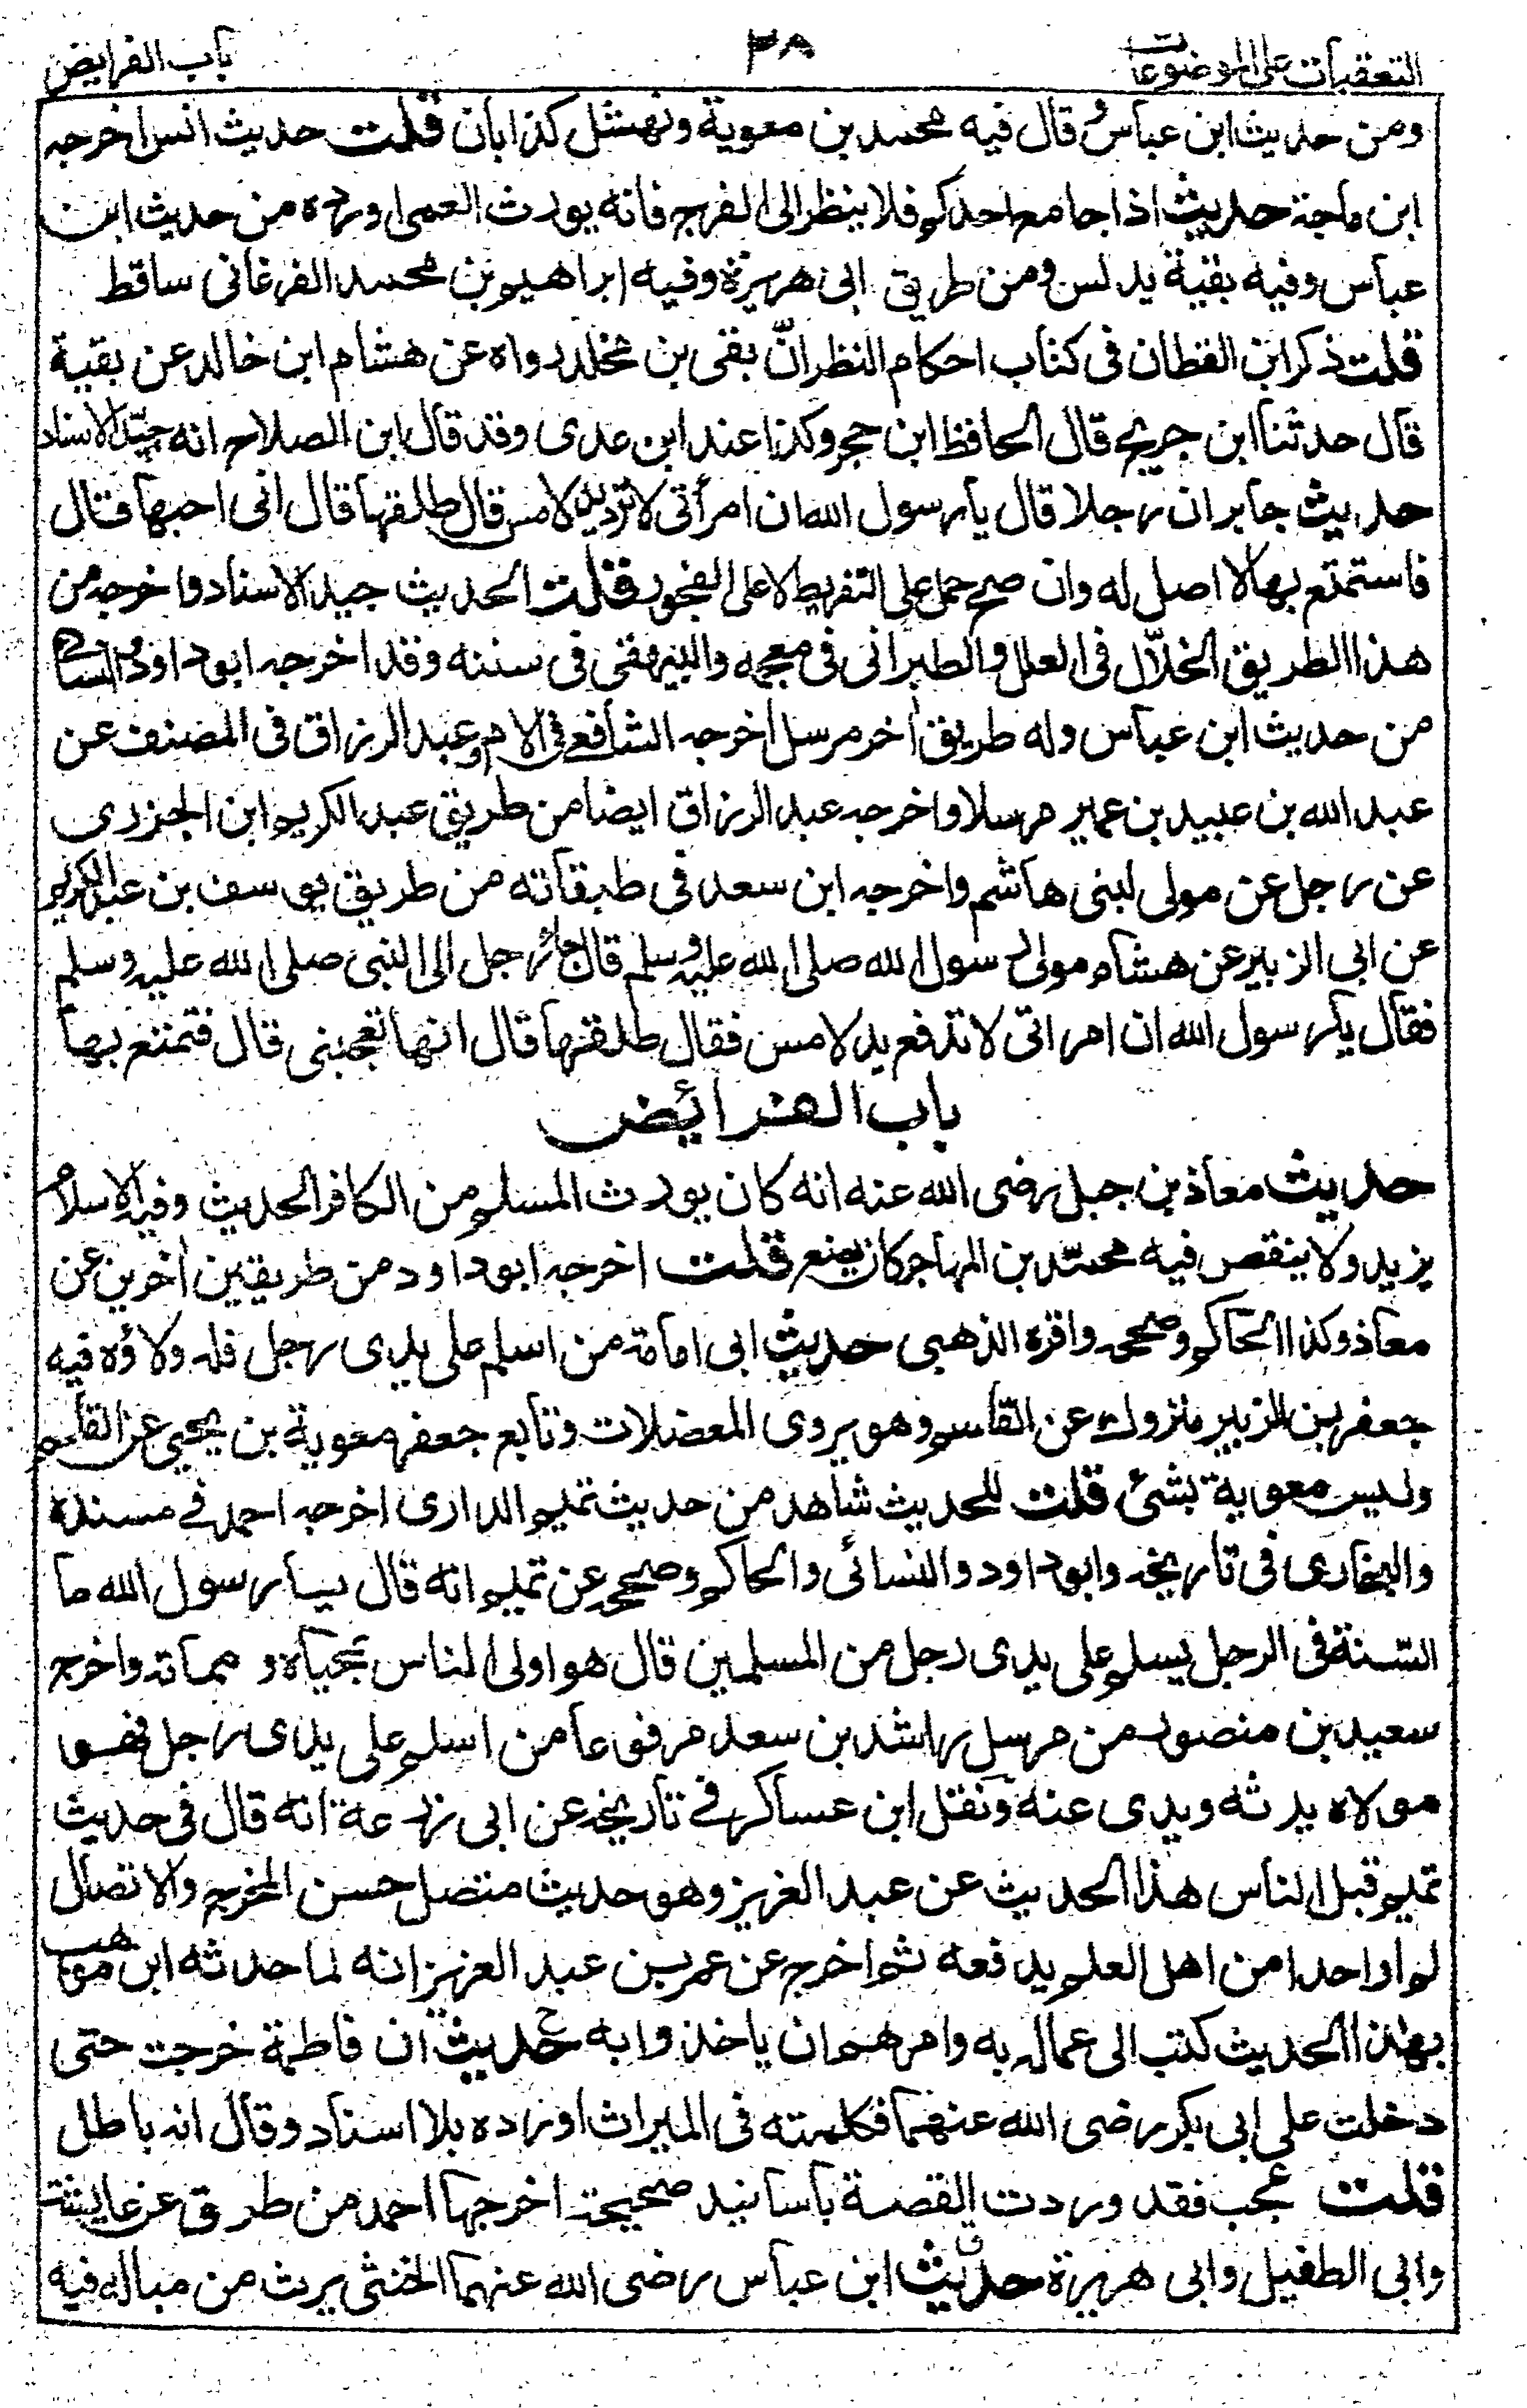 التعقبات على الموضوعات
٣٨
باب الفرايض
ومن حديث ابن عباس قال فيه محمد بن معوية ونهشل كذابان قلت حديث انس اخرجه
ابن ماجة حديث اذا جامع احدكم فلا ينظر الى الفرج فانه يورث العمى اورده من حديث ابن
عباس وفيه بقية يدلس ومن طريق ابى هريرة وفيه ابراهيم بن محمد الفرغانى ساقط
قلت ذكر ابن القطان فى كتاب احكام النظر انّ بقى بن مخلد رواه عن هشام ابن خالد عن بقية
قال حدثنا ابن جريج قال الحافظ ابن حجر وكذا عند ابن عدى وقد قال ابن الصلاح انه جيّد الاسناد
حديث جابر ان رجلا قال يا رسول الله ان امرأتى لا ترد يد لامس قال طلقها قال انى احبها قال
فاستمتع بها لا اصل له وان صح حمل على التفريط لا على الفجور قلت الحديث جيد الاسناد واخرجه من
هذا الطريق الخلّال فى العلل والطبرانى فى معجمه والبيهقى فى سننه وقد اخرجه ابو داود والنسائى
من حديث ابن عباس وله طريق اخر مرسل اخرجه الشافعى فى الام وعبد الرزاق فى المصنف عن
عبد الله بن عبيد بن عمير مرسلا واخرجه عبد الرزاق ايضا من طريق عبد الكريم ابن الجزرى
عن رجل عن مولى لبنى هاشم واخرجه ابن سعد فى طبقاته من طريق يوسف بن عبد الكريم
عن ابى الزبير عن هشام مولى رسول الله صلى الله عليه وسلم قال جاء رجل الى النبى صلى الله عليه وسلم
فقال يا رسول الله ان امراتى لا تدفع يد لامس فقال طلقها قال انها تعجبنى قال فتمتع بها
باب الفرائض
حديث معاذ بن جبل رضى الله عنه انه كان يورث المسلم من الكافر الحديث وفيه الاسلام
يزيد ولا ينقص فيه محمّد بن المهاجر كان يضع قلت اخرجه ابو داود من طريقين اخرين عن
معاذ وكذا الحاكم وصححه واقره الذهبى حديث ابى امامة من اسلم على يدى رجل فله ولاؤه فيه
جعفر بن الزبير متروك عن القاسم وهو يروى المعضلات وتابع جعفر معوية بن يحيى عن القاسم
وليس معوية بشئ قلت للحديث شاهد من حديث تميم الدارى اخرجه احمد فى مسنده
والبخارى فى تاريخه وابو داود والنسائى والحاكم وصححه عن تميم انه قال يا رسول الله ما
السّنة فى الرجل يسلم على يدى رجل من المسلمين قال هو اولى الناس بمحياه ومماته واخرج
سعيد بن منصور من مرسل راشد بن سعد مرفوعا من اسلم على يدى رجل فهو
مولاه يرثه ويدى عنه ونقل ابن عساكر فى تاريخه عن ابى زرعة انه قال فى حديث
تميم قبل الناس هذا الحديث عن عبد العزيز وهو حديث متصل حسن المخرج والاتصال
لم ار احدا من اهل العلم يدفعه ثم اخرج عن عمر بن عبد العزيز انه لما حدثه ابن موهب
بهذا الحديث كتب الى عماله به وامرهم ان ياخذوا به حديث ان فاطمة خرجت حتى
دخلت على ابى بكر رضى الله عنهما فكلمته فى الميراث اورده بلا اسناد وقال انه باطل
قلت عجب فقد وردت القصة باسانيد صحيحة اخرجها احمد من طرق عن عايشة
وابى الطفيل وابى هريرة حديث ابن عباس رضى الله عنهما الخنثى يرث من مباله فيه